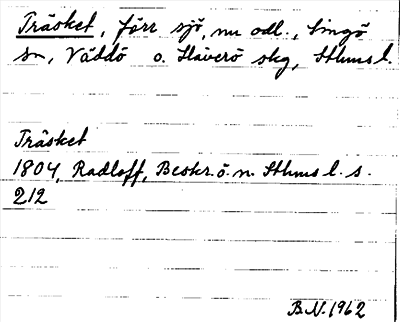 Träsket, förr sjö, nu odl., Singö
sn, Väddö o. Häverö skg, Sthms l.
Träsket
1804, Radloff, Beskr. ö. n. Sthms l. s.
212
B.N. 1962